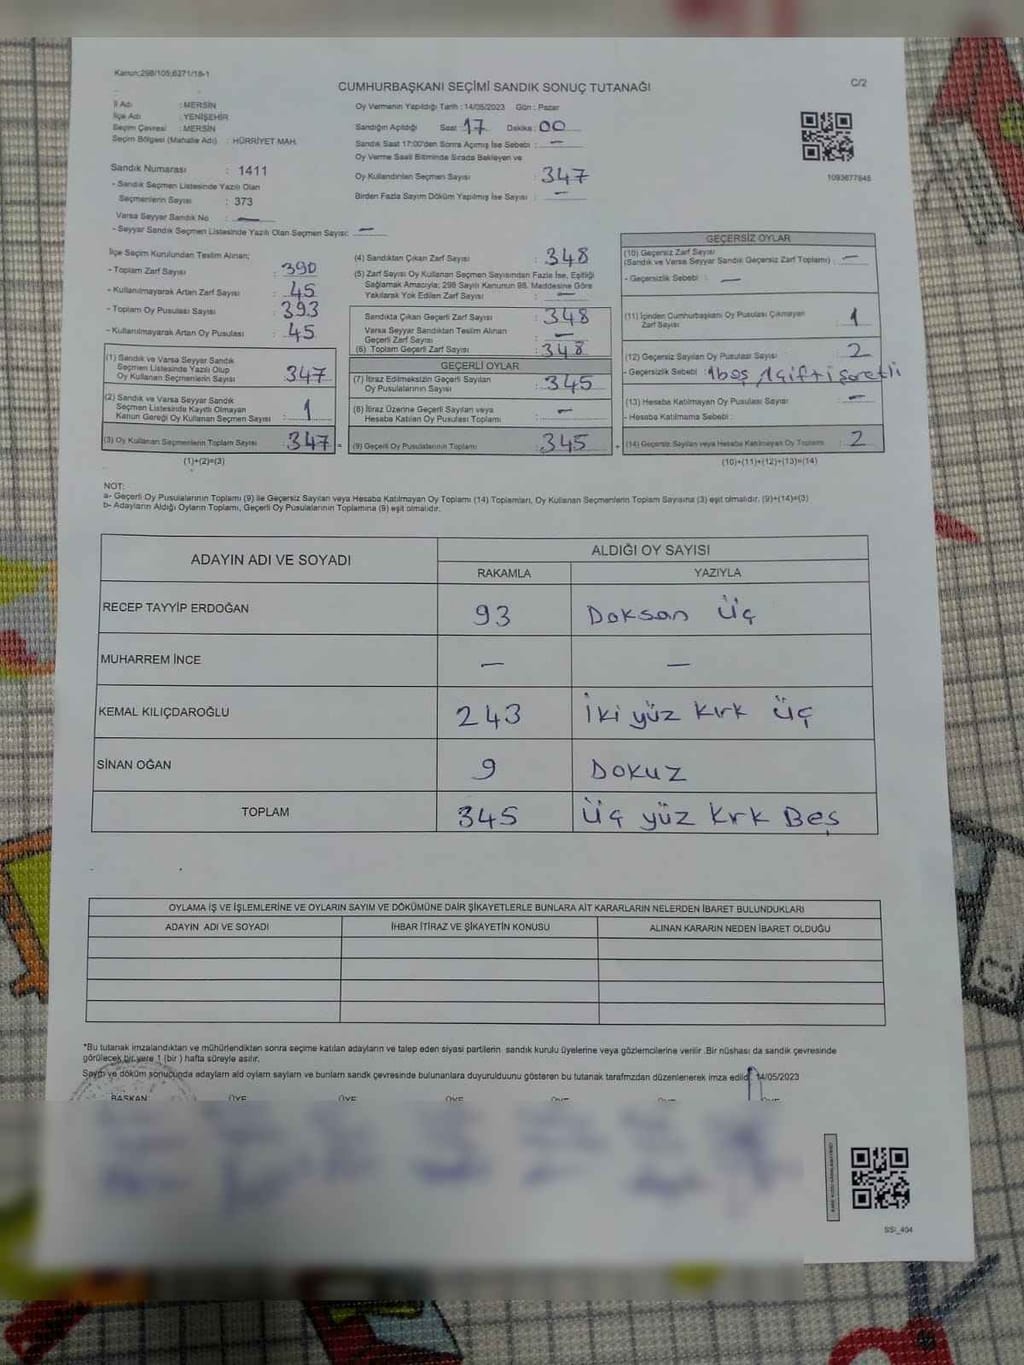 Kanun:298/105;6271/18-1
CUMHURBAŞKANI SEÇİMİ SANDIK SONUÇ TUTANAĞI
C/2
İl Adı : MERSİN
İlçe Adı : YENİŞEHİR
Seçim Çevresi : MERSİN
Seçim Bölgesi (Mahalle Adı) : HÜRRİYET MAH.
Oy Vermenin Yapıldığı Tarih : 14/05/2023 Gün : Pazar
Sandığın Açıldığı Saat : 17 Dakika : 00
Sandık Saat 17:00'den Sonra Açımış İse Sebebi : —
Oy Verme Saati Bitiminde Sırada Bekleyen ve
Oy Kullandırılan Seçmen Sayısı : 347
Birden Fazla Sayım Döküm Yapılmış İse Sayısı : —
1093677845
Sandık Numarası : 1411
- Sandık Seçmen Listesinde Yazılı Olan
Seçmenlerin Sayısı : 373
Varsa Seyyar Sandık No : —
- Seyyar Sandık Seçmen Listesinde Yazılı Olan Seçmen Sayısı: —
İlçe Seçim Kurulundan Teslim Alınan;
- Toplam Zarf Sayısı : 390
- Kullanılmayarak Artan Zarf Sayısı : 45
- Toplam Oy Pusulası Sayısı : 393
- Kullanılmayarak Artan Oy Pusulası : 45
(1) Sandık ve Varsa Seyyar Sandık
Seçmen Listesinde Yazılı Olup
Oy Kullanan Seçmenlerin Sayısı : 347
(2) Sandık ve Varsa Seyyar Sandık
Seçmen Listesinde Kayıtlı Olmayan
Kanun Gereği Oy Kullanan Seçmen Sayısı : 1
(3) Oy Kullanan Seçmenlerin Toplam Sayısı : 347 =
(1)+(2)=(3)
(4) Sandıktan Çıkan Zarf Sayısı : 348
(5) Zarf Sayısı Oy Kullanan Seçmen Sayısından Fazla İse, Eşitliği
Sağlamak Amacıyla; 298 Sayılı Kanunun 98. Maddesine Göre
Yakılarak Yok Edilen Zarf Sayısı : —
Sandıkta Çıkan Geçerli Zarf Sayısı : 348
Varsa Seyyar Sandıktan Teslim Alınan
Geçerli Zarf Sayısı : —
(6) Toplam Geçerli Zarf Sayısı : 348
GEÇERLİ OYLAR
(7) İtiraz Edilmeksizin Geçerli Sayılan
Oy Pusulalarının Sayısı : 345
(8) İtiraz Üzerine Geçerli Sayılan veya
Hesaba Katılan Oy Pusulası Toplamı : —
(9) Geçerli Oy Pusulalarının Toplamı : 345 +
GEÇERSİZ OYLAR
(10) Geçersiz Zarf Sayısı
(Sandık ve Varsa Seyyar Sandık Geçersiz Zarf Toplamı) : —
- Geçersizlik Sebebi : —
(11) İçinden Cumhurbaşkanı Oy Pusulası Çıkmayan
Zarf Sayısı : 1
(12) Geçersiz Sayılan Oy Pusulası Sayısı : 2
- Geçersizlik Sebebi : 1boş / 1çift işaretli
(13) Hesaba Katılmayan Oy Pusulası Sayısı : —
- Hesaba Katılmama Sebebi :
(14) Geçersiz Sayılan veya Hesaba Katılmayan Oy Toplamı : 2
(10)+(11)+(12)+(13)=(14)
NOT:
a- Geçerli Oy Pusulalarının Toplamı (9) ile Geçersiz Sayılan veya Hesaba Katılmayan Oy Toplamı (14) Toplamları, Oy Kullanan Seçmenlerin Toplam Sayısına (3) eşit olmalıdır. (9)+(14)=(3)
b- Adayların Aldığı Oyların Toplamı, Geçerli Oy Pusulalarının Toplamına (9) eşit olmalıdır.
ADAYIN ADI VE SOYADI
ALDIĞI OY SAYISI
RAKAMLA YAZIYLA
RECEP TAYYİP ERDOĞAN 93 Doksan Üç
MUHARREM İNCE — —
KEMAL KILIÇDAROĞLU 243 İki yüz Kırk Üç
SİNAN OĞAN 9 Dokuz
TOPLAM 345 Üç yüz Kırk Beş
OYLAMA İŞ VE İŞLEMLERİNE VE OYLARIN SAYIM VE DÖKÜMÜNE DAİR ŞİKAYETLERLE BUNLARA AİT KARARLARIN NELERDEN İBARET BULUNDUKLARI
ADAYIN ADI VE SOYADI İHBAR İTİRAZ VE ŞİKAYETİN KONUSU ALINAN KARARIN NEDEN İBARET OLDUĞU
*Bu tutanak imzalandıktan ve mühürlendikten sonra seçime katılan adayların ve talep eden siyasi partilerin sandık kurulu üyelerine veya gözlemcilerine verilir .Bir nüshası da sandık çevresinde
görülecek bir yere 1 (bir ) hafta süreyle asılır.
Sayım ve döküm sonucunda adayların ald oyların sayların ve bunların sandk çevresinde bulunanlara duyurulduunu gösteren bu tutanak tarafmzdan düzenlenerek imza edildi. 14/05/2023
BAŞKAN ÜYE ÜYE ÜYE
SSI_404